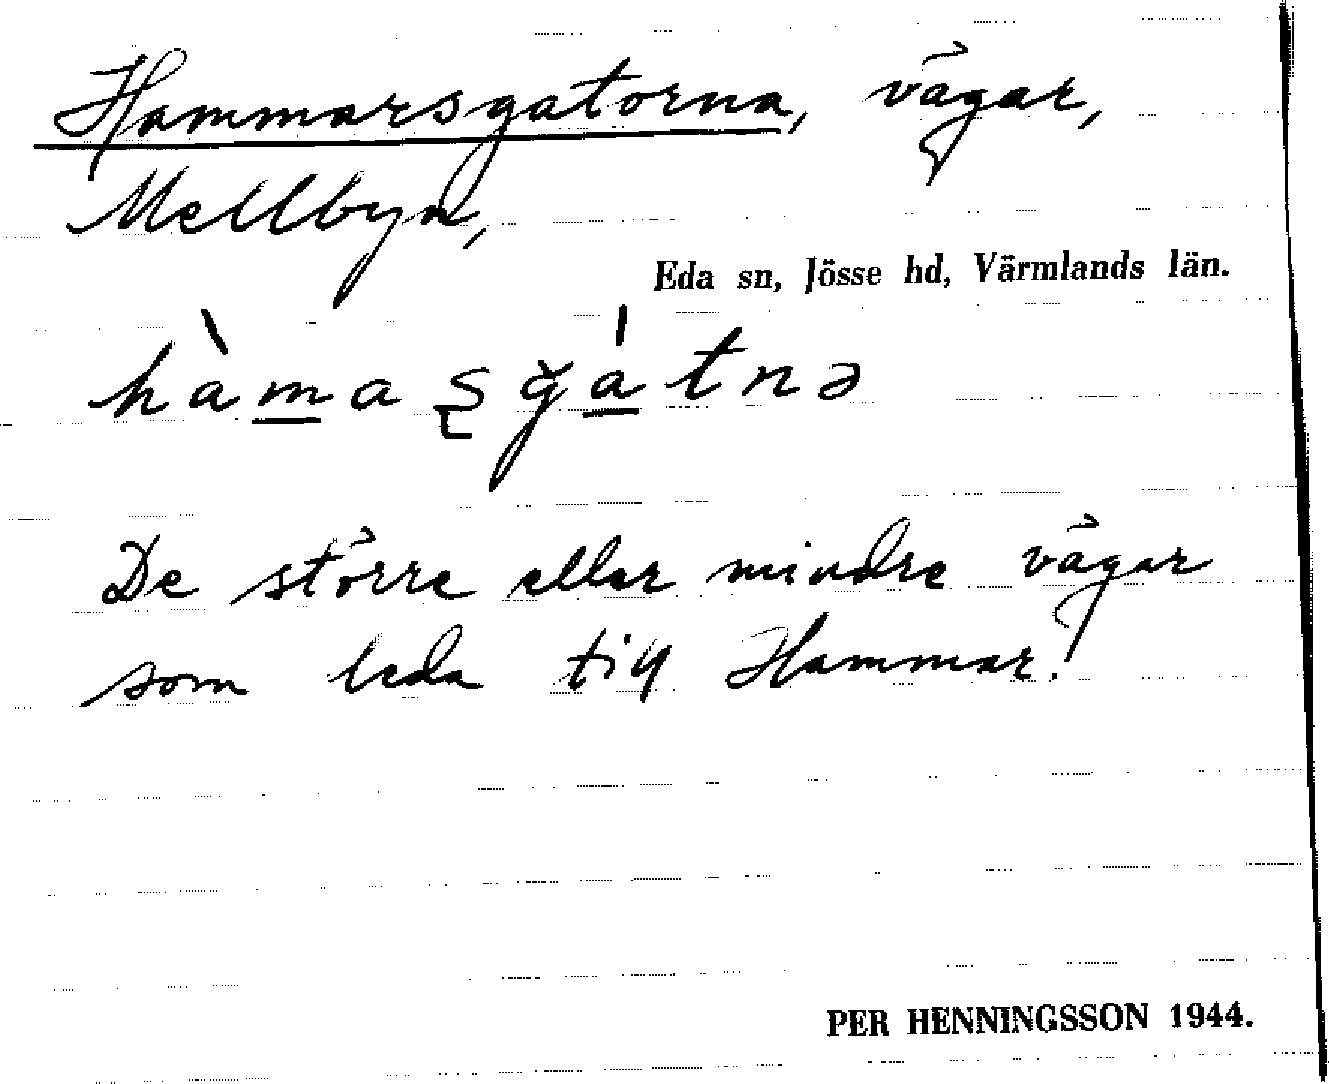 Hammarsgatorna, vägar,
Mellbyn,
Eda sn, Jösse hd, Värmlands län.
hàmaʂgátnə
De större eller mindre vägar
som leda till Hammar.
PER HENNINGSSON 1944.